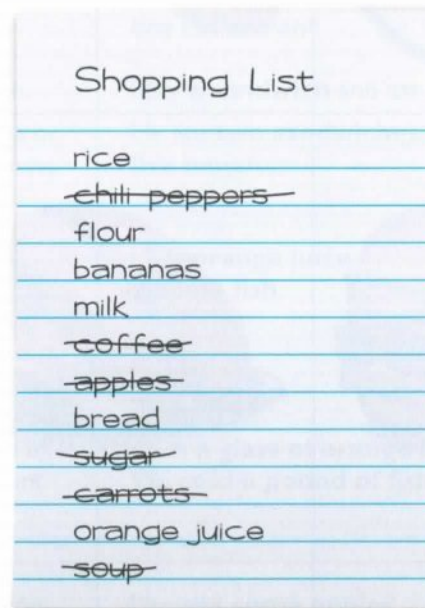 Shopping List
rice
chili peppers
flour
bananas
milk
coffee
apples
bread
sugar
carrots
orange juice
soup